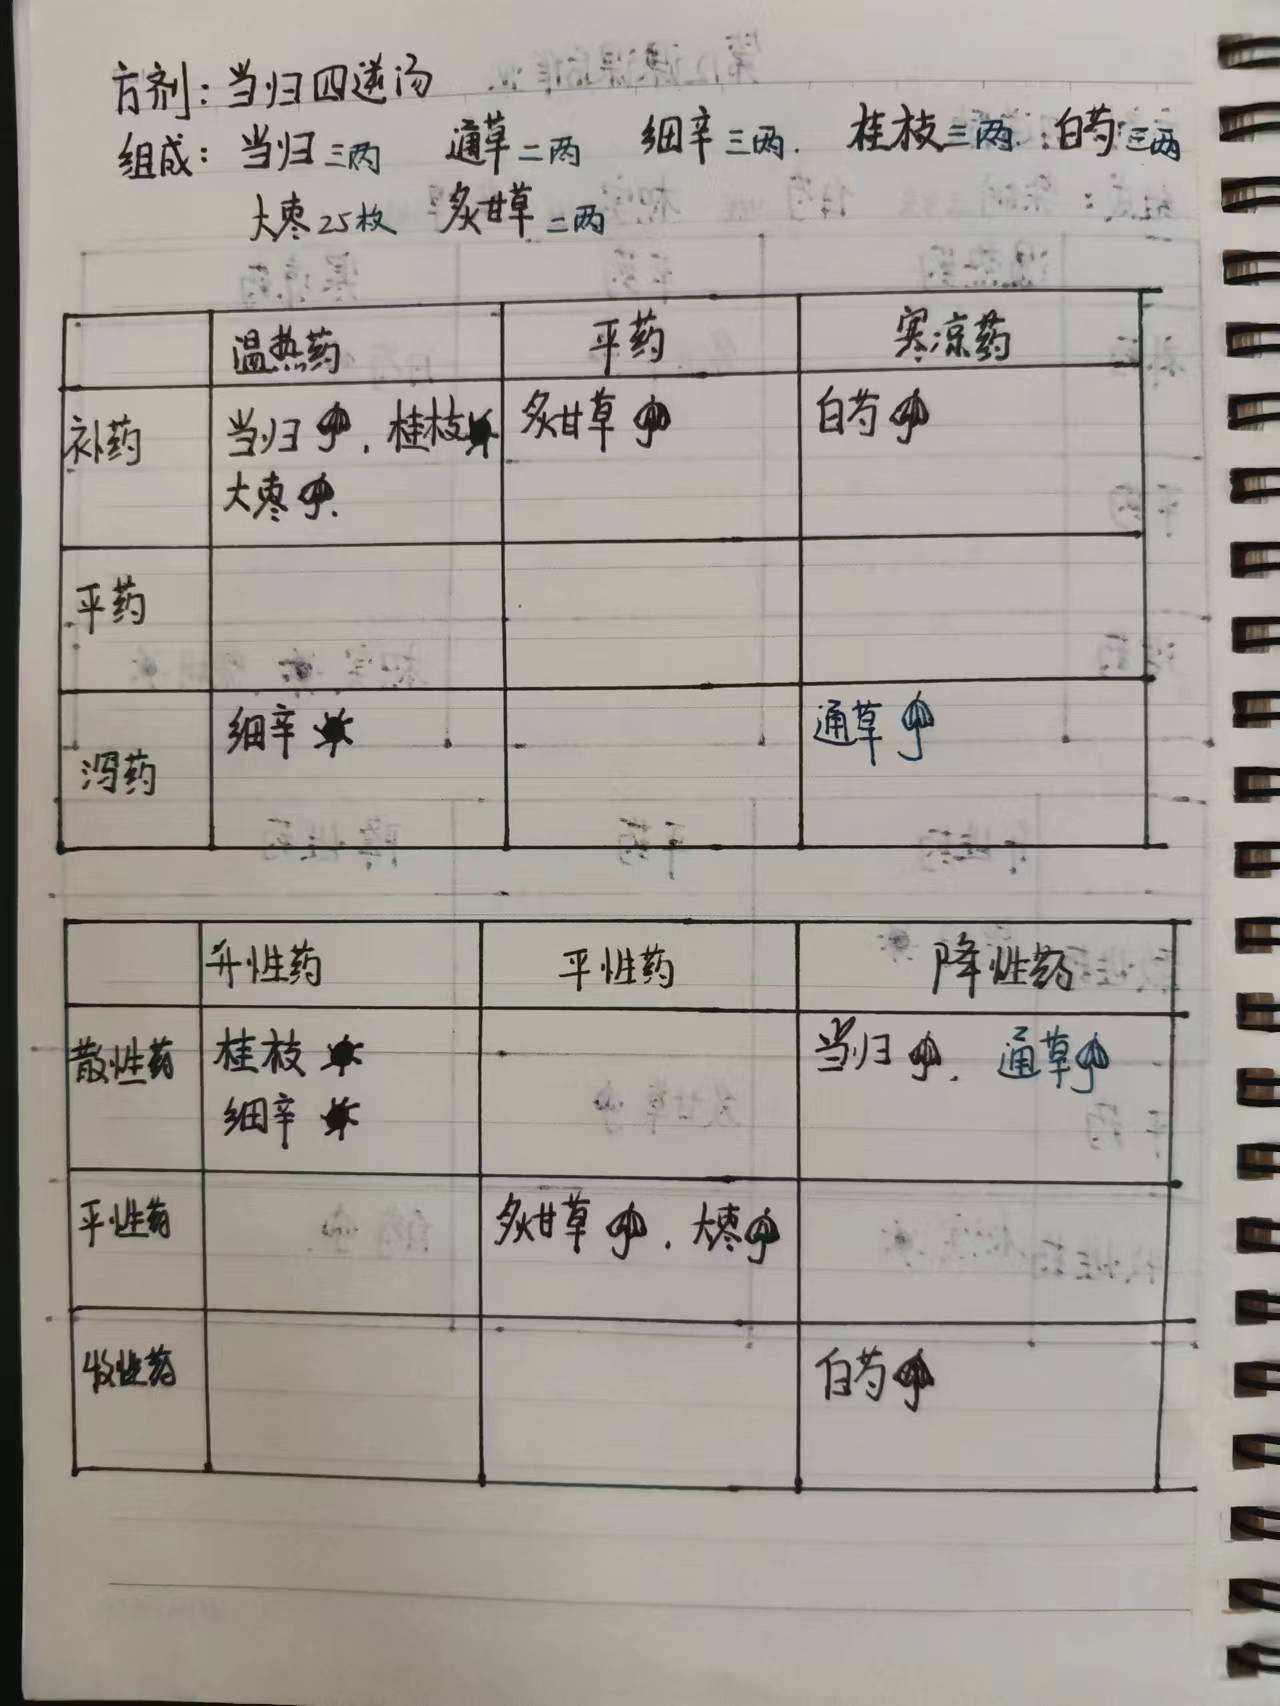 方剂：当归四逆汤
组成：当归三两 通草二两 细辛三两. 桂枝三两. 白芍三两
大枣25枚 炙甘草二两
温热药 平药 寒凉药
补药 当归 . 桂枝 炙甘草 白芍
大枣 .
平药
泻药 细辛 通草
升性药 平性药 降性药
散性药 桂枝 当归 . 通草
细辛
平性药 炙甘草 . 大枣
收性药 白芍